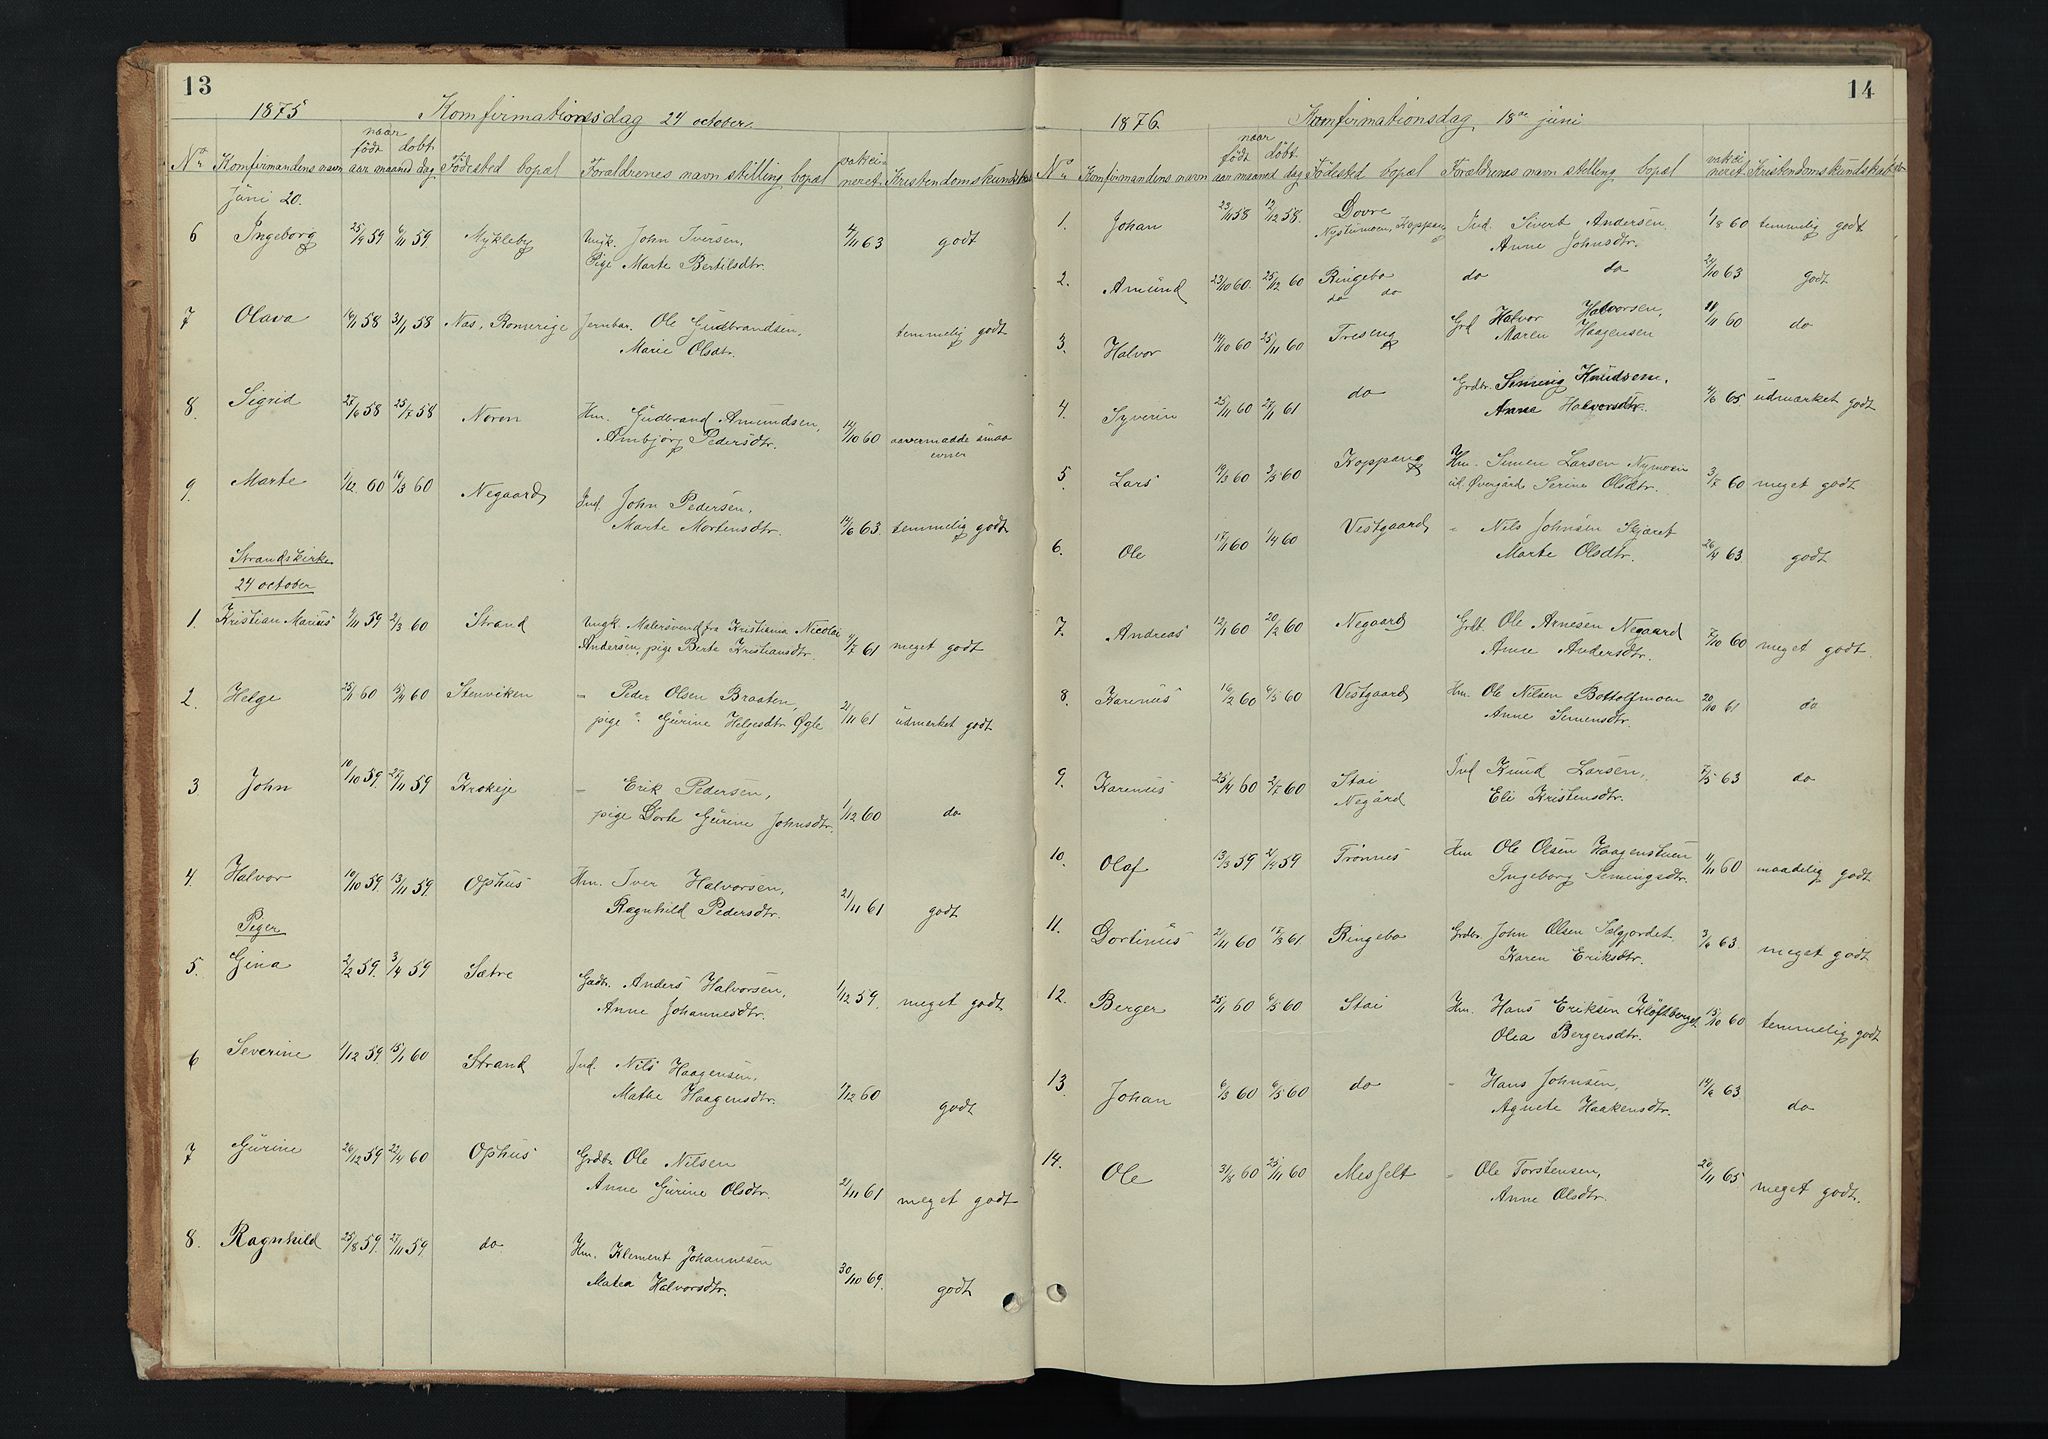 13
1875 Komfirmationsdag 24 october.
naar
født døbt
No Komfirmandens navn aar maaned dag Fødested bopæl Forældrenes navn stilling bopæl vakcineret Kristendomskundskab
Juni 20.
6 Ingeborg 25/9 59 6/11 59 Mykleby Ungk. John Iversen, 4/11 63 godt
Pige Marte Bertilsdtr.
7 Olava 31/11 58 Næs, Romerige Jernbar. Ole Gudbrandsen, temmelig godt
Marie Olsdtr.
8. Sigrid 27/6 58 25/7 58 Noren Hm. Gudbrand Amundsen, 14/10 60 aavermaade smaa
Ambjørg Pedersdtr. evner
9 Marte 1/12 60 18/3 60 Negaard Ind. John Pedersen, 14/6 63 temmelig godt
Marte Mortensdtr.
Strandskirke
24 october
1. Kristian Marius 9/11 59 2/3 60 Strand Ungk. Malersvend fra Kristiania Nicolai
Andersen, pige Berte Kristiansdtr. 4/7 61 meget godt
2. Helge 25/1 60 15/4 60 Stenviken – Peder Olsen Braaten, 21/11 61 udmerket godt
pige Gurine Helgesdtr. Øgle
3 John 10/10 59. 27/11 59 Krokeje – Erik Pedersen, 1/12 60 do
pige Dorte Gurine Johnsdtr.
4. Halvor 10/10 59. 13/11 59. Ophus Hm. Iver Halvorsen, 21/11 61 godt
Ragnhild Pedersdtr.
Piger
5. Gina 2/2 59. 3/4 59 Sætre Gadbr. Anders Halvorsen, 1/12 59. meget godt
Anne Johannesdtr.
6 Severine 1/12 59 15/1 60 Strand Ind. Nils Haagensen, 1/12 60 godt
Mathe Haagensdtr.
7 Gurine 26/12 59 22/4 60 Ophus Grdbr. Ole Nilsen 21/11 61 meget godt
Anne Gurine Olsdtr.
8. Ragnhild 25/8 59. 27/11 59. do Hm. Klement Johannesen 30/10 69. godt
Matea Halvorsdtr.
14
1876 Komfirmationsdag 18de juni
naar
født døbt
No Komfirmandens navn aar maaned dag Fødested bopæl Forældrenes navn stilling bopæl vakcineret. Kristendomskundskab
1. Johan 23/11 58 12/12 58. Dovre Ind. Sivert Andersen, 1/8 60 temmelig godt
Nystumoen, Koppang Anne Johnsdtr.
2. Amund 23/10 60. 25/12 60 Ringebo do do 24/10 63 godt
do do
3. Halvor 14/10 60 25/11 60 Treseng Grd Halvor Halvorsen, 11/11 60 do
Maren Haagensen
4. Syverin 25/11 60 27/1 61 do Grdbr. Semmig Knudsen, 4/6 65 udmærket godt
Anne Halvorsdtr.
5 Lars 14/3 60 3/5 60 Koppang Hm. Simen Larsen Nymoen 3/7 60 meget godt
u. Øvergård Serine Olsdtr.
6. Ole 17/1 60 1/4 60 Vestgaard – Nils Johnsen Skjæret 26/4 63. godt
Marte Olsdtr.
7. Andreas 12/1 60 20/2 60 Negaard Grdb. Ole Arnesen Negaard 7/10 60 meget godt.
Anne Andersdtr.
8. Karenius 16/2 60 6/5 60 Vestgaard Hm. Ole Nilsen Bottolfmoen 20/10 61 do
Anne Semensdtr.
9. Karenius 25/4 60 2/7 60 Stai Ind Knud Larsen, 7/5 63 do
Negård Eli Kristensdtr.
10. Olaf 13/3 59 2/4 59 Trønnes Hm Ole Olsen Haagenstuen 11/11 60 maadelig godt
Ingeborg Semingsdtr.
11. Dortinus 21/11 60 17/3 61 Ringebo Grdbr. John Olsen Sølgjordet 3/4 63. meget godt
Karen Eriksdtr.
12. Berger 25/1 60 6/5 60 Stai Hm. Hans Eriksen Kløftberget 15/10 60 temmelig godt
Olea Bergersdtr.
13 Johan 6/3 60 6/5 60 do – Hans Johnsen, 14/4 63. do
Agnete Haakensdtr.
14. Ole 31/8 60 25/11 60 Messelt – Ole Torstensen, 20/11 65 meget godt.
Anne Olsdtr.